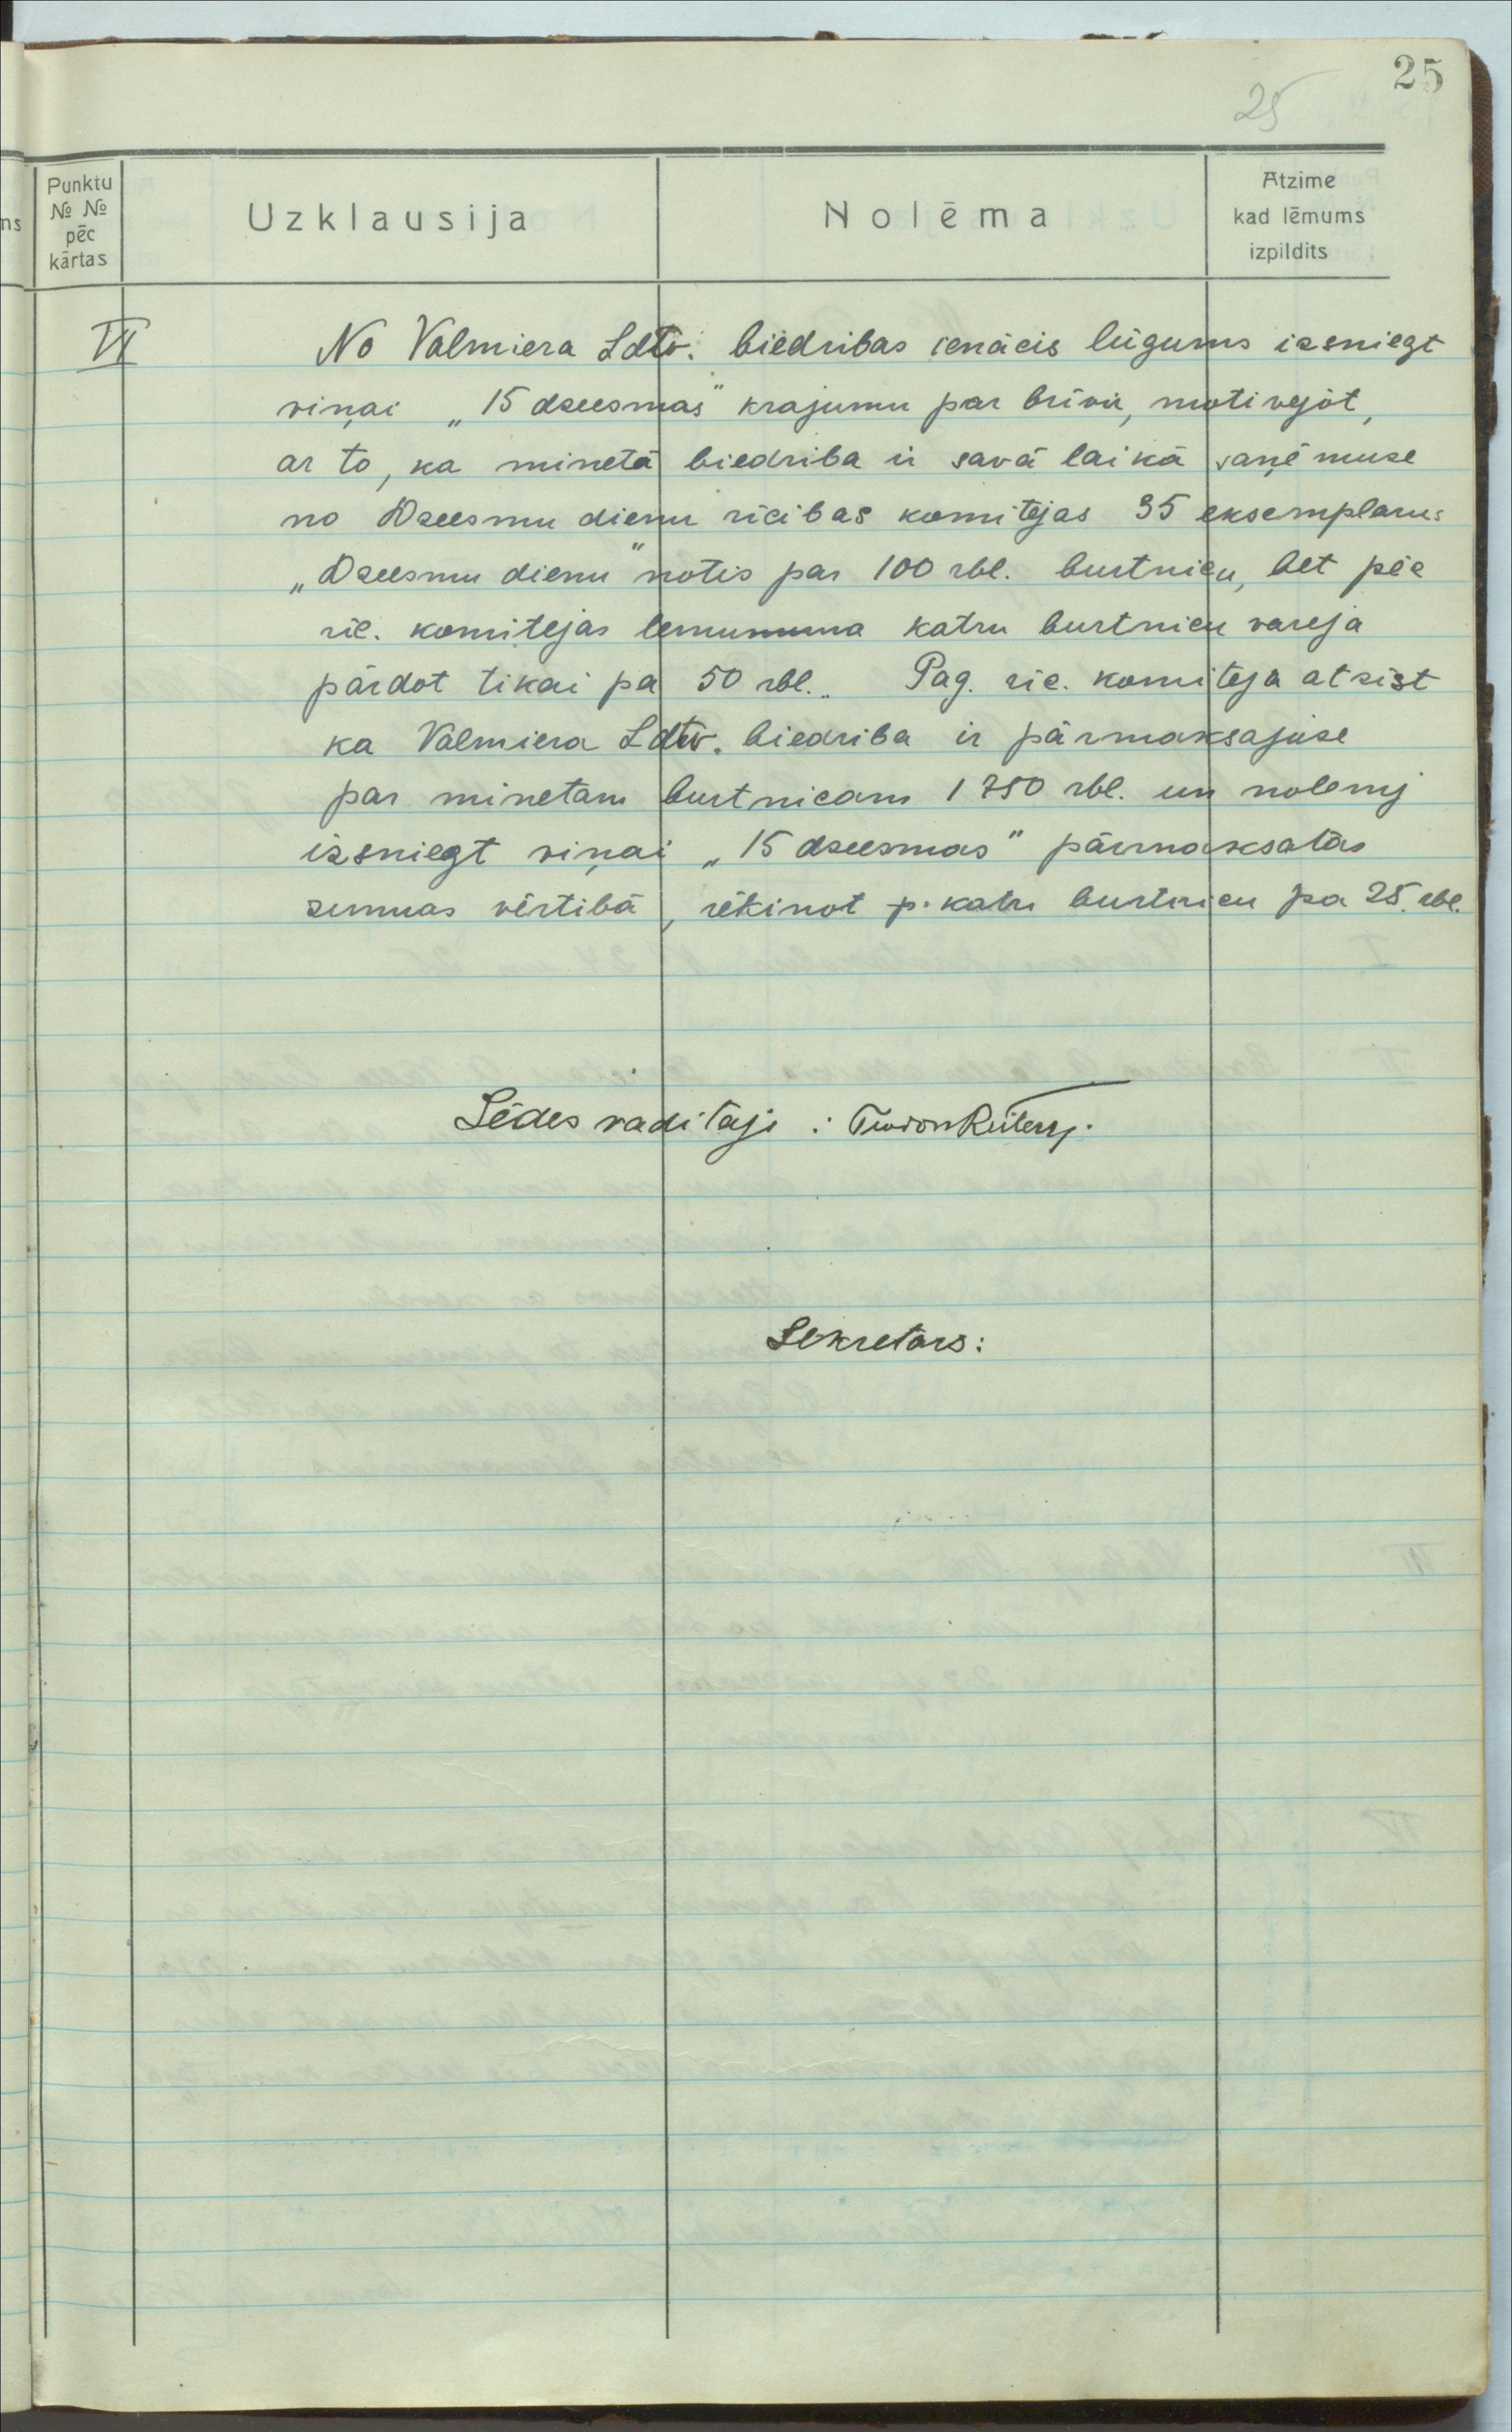 25
25
Punktu № № pēc kārtas
Uzklausija
Nolēma
Atzime kad lēmums izpildits
VI
No Valmiera Ldtv. biedribas ienācis lūgums izsniegt
viņai „15 dzeesmas" krajumu par brivu, motivejot,
ar to, ka minetā biedriba ir savā laikā saņēmuse
no Dzeesmu dienu ricibas komitejas 35 eksemplarus
„Dzeesmu dienu" notis par 100 rbl. burtnicu, bet pēc
ric. komitejas lemumuma katru burtnicu vareja
pārdot tikai pa 50 rbl.. Pag. ric. komiteja atzist
ka Valmiera Ldtv. biedriba ir pārmaksajuse
par minetam burtnicam 1750 rbl. un nolemj
izsniegt viņai „15 dzeesmas" pārmaksatās
summas vērtibā, rēkinot p. katru burtnicu pa 25. rbl.
Sēdes vaditājs : Teodors Reiters.
Sekretars: